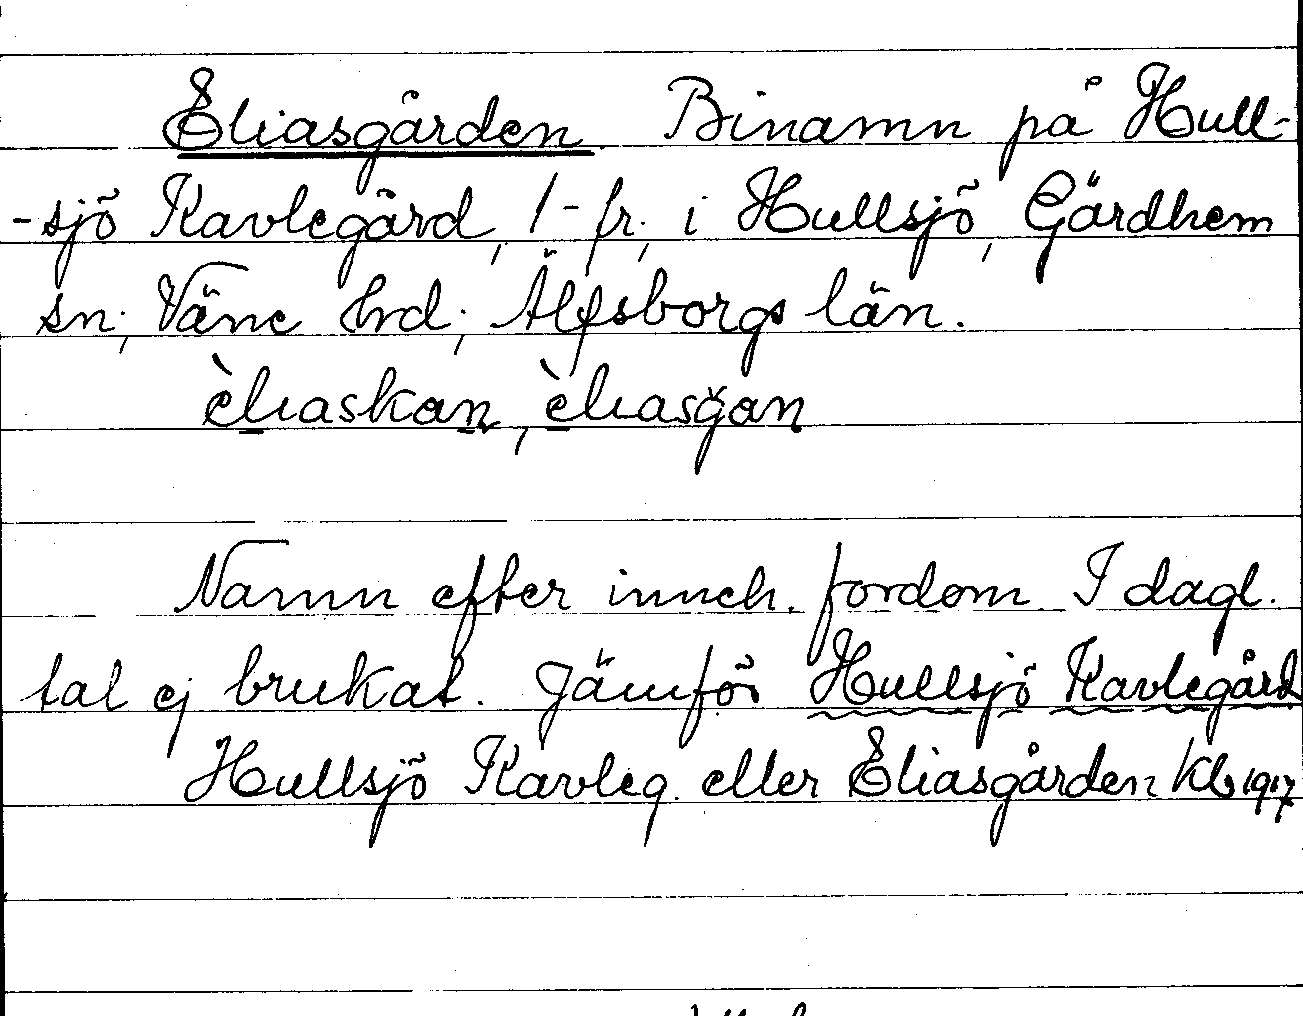 Eliasgården. Binamn på Hull-
-sjö Kavlegård, 1-fr., i Hullsjö, Gärdhem
sn, Väne hrd, Älfsborgs län.
èliaskan, èliasgan
Namn efter inneh. fordom. I dagl.
tal ej brukat. Jämför Hullsjö Kavlegård
Hullsjö Kavleg. eller Eliasgården Kb 1917